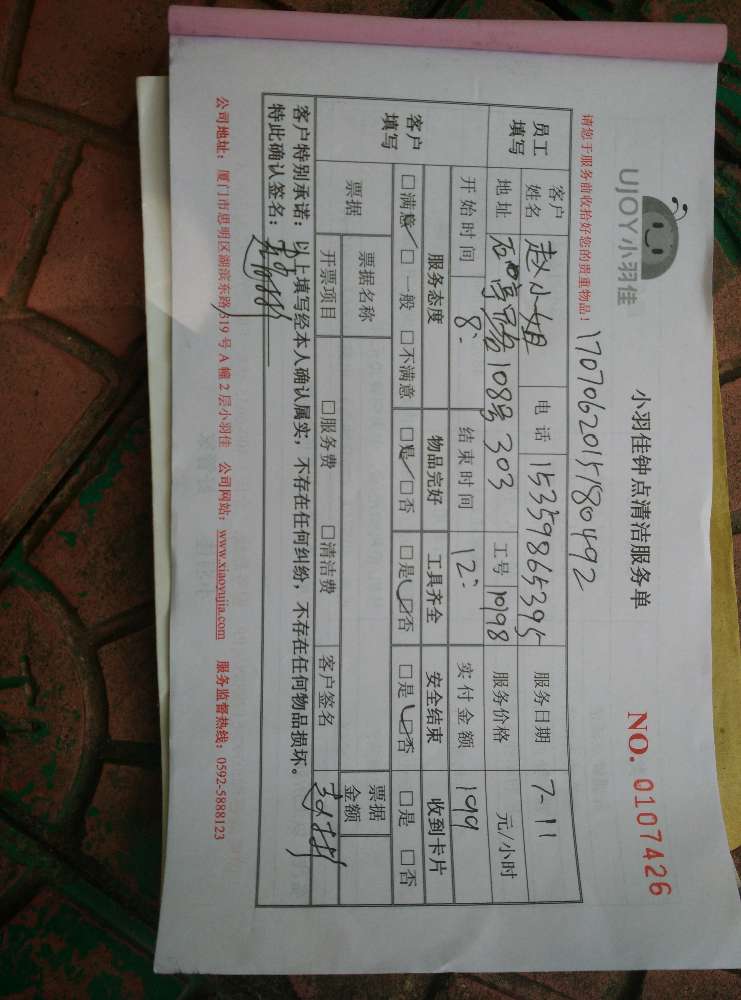 UJOY小羽佳
小羽佳钟点清洁服务单
NO. 0107426
请您于服务前收拾好您的贵重物品！
1707062015180492
员工填写 客户姓名 赵小姐 电话 15359865395 服务日期 7-11
地址 108号303 工号 10198 服务价格 元/小时
客户填写 开始时间 8: 结束时间 12: 实付金额 199
服务态度 物品完好 工具齐全 安全结束 收到卡片
□满意✓ □一般 □不满意 □是✓ □否 □是 □否 □是 □否 □是 □否
票据 票据名称 票据金额
开票项目 □服务费 □清洁费 客户签名
客户特别承诺：以上填写经本人确认属实，不存在任何纠纷，不存在任何物品损坏。
特此确认签名：
公司地址：厦门市思明区湖滨东路319号A幢2层小羽佳 公司网站：www.xiaoyujia.com 服务监督热线：0592-5888123